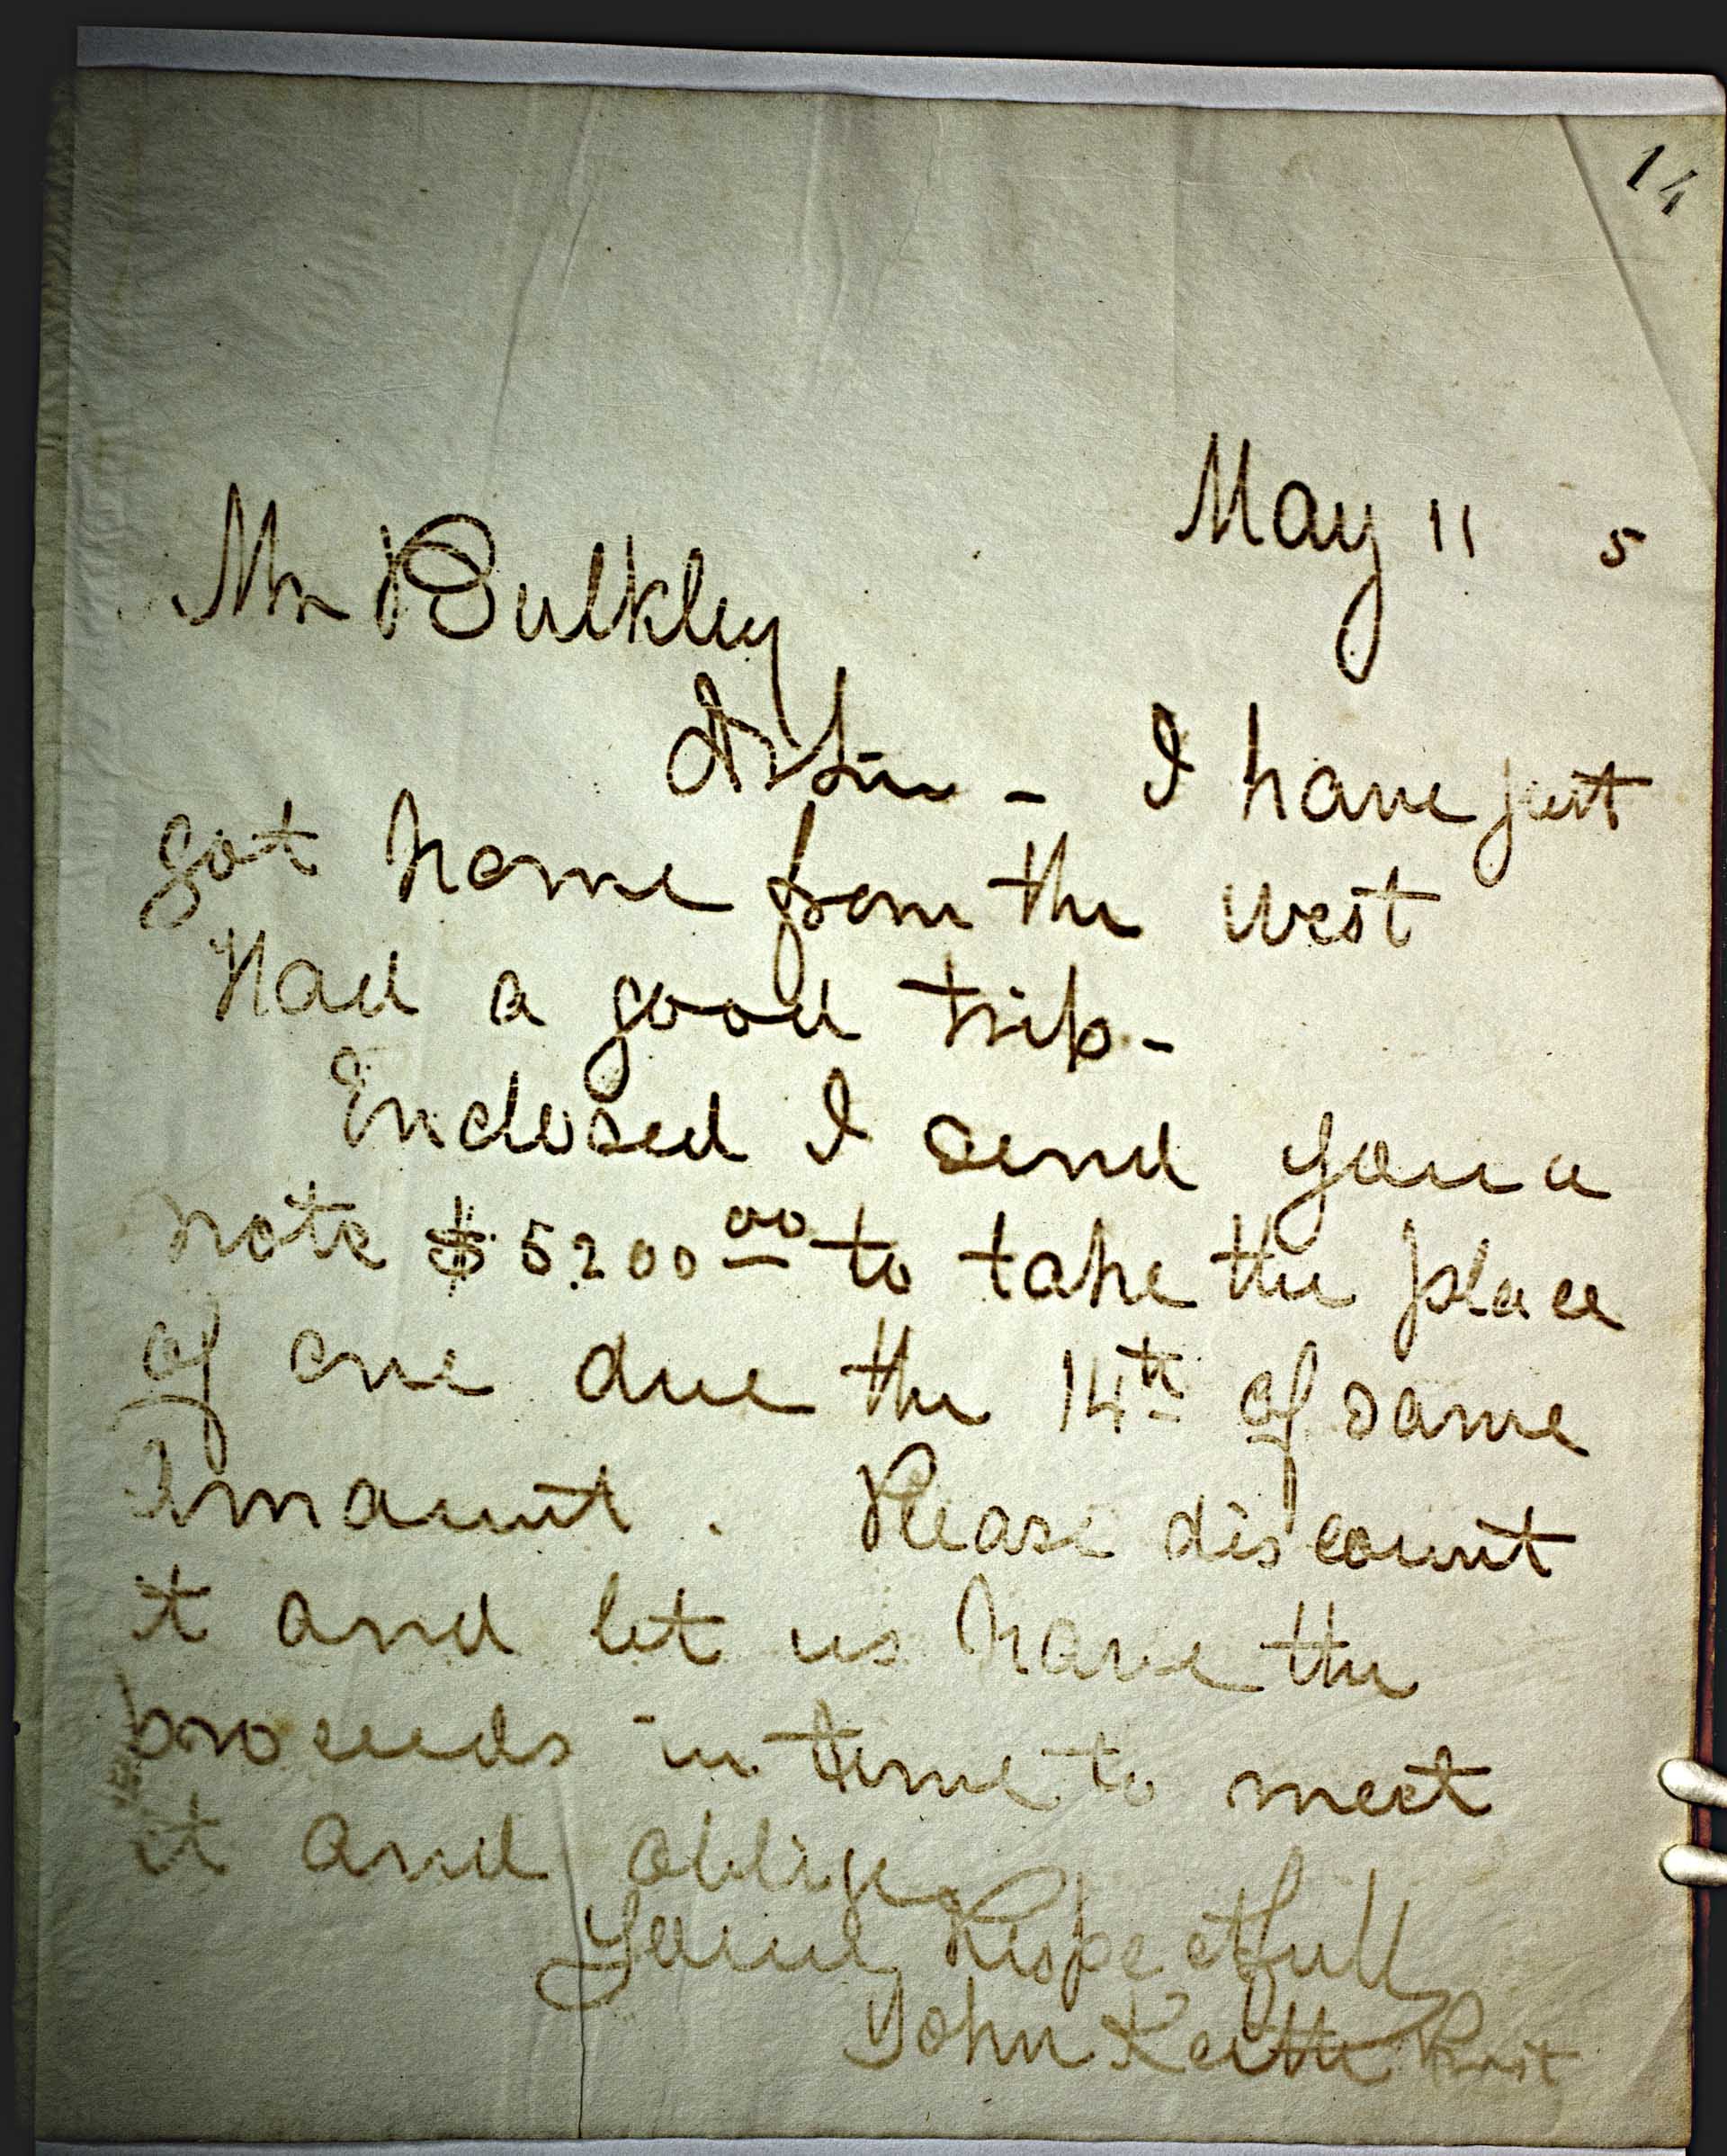 14
May 11 5
Mr Bulkley
Dr Sir - I have just
got home from the West
Had a good trip -
Enclosed I send you a
note $5200 00 to take the place
of one due the 14th of same
Amount. Please discount
it and let us have the
proceeds in time to meet
it and oblige
Yours Respectfull
John Keith Prest